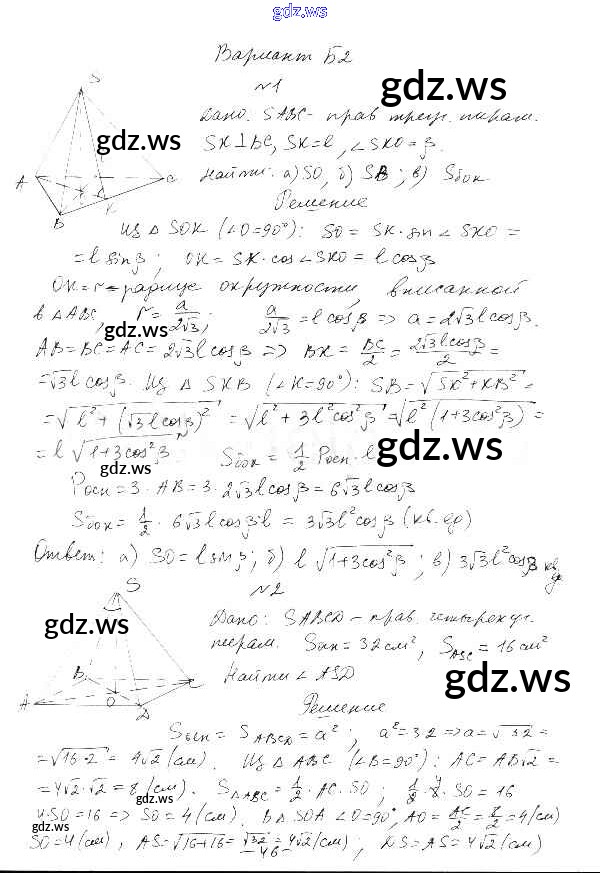 gdz.ws
Вариант Б2
№1
gdz.ws
Дано: SABC - прав. треуг. пирам.
gdz.ws
SK⊥BC, SK=l, ∠SKO=β.
Найти: а) SO, б) SB; в) Sбок
Решение
S
A
B
C
K
Из △ SOK (∠O=90°): SO = SK · sin ∠SKO =
= l sinβ; OK = SK · cos ∠SKO = l cosβ
OK = r - радиус окружности, вписанной
в △ABC, r = a/2√3; a/2√3 = l cosβ => a = 2√3 l cosβ.
gdz.ws
gdz.ws
AB = BC = AC = 2√3 l cosβ => BK = BC/2 = 2√3 l cosβ/2 =
= √3 l cosβ. Из △ SKB (∠K=90°): SB = √SK²+KB² =
= √l² + (√3 l cosβ)² = √l² + 3l² cos²β = √l²(1+3cos²β) =
= l √1+3cos²β Sбок = 1/2 Pосн · l
gdz.ws
gdz.ws
Pосн = 3 · AB = 3 · 2√3 l cosβ = 6√3 l cosβ
Sбок = 1/2 · 6√3 l cosβ · l = 3√3 l² cosβ (кв. ед)
Ответ: а) SO = l sinβ; б) l √1+3cos²β; в) 3√3 l² cosβ кв. ед
№2
gdz.ws
Дано: SABCD - прав. четырехуг.
пирам. Sосн = 32 см², SASC = 16 см²
Найти ∠ ASD
gdz.ws
S
A
B
C
D
O
Решение
Sосн = SABCD = a²; a² = 32 => a = √32 =
= √16·2 = 4√2 (см). Из △ ABC (∠B=90°): AC = AB√2 =
= 4√2 · √2 = 8 (см). S△ABC = 1/2 · AC · SO; 1/2 · 8 · SO = 16
gdz.ws
gdz.ws
4·SO = 16 => SO = 4 (см). В △ SOA ∠O=90°, AO = AC/2 = 8/2 = 4 (см)
SO = 4 (см), AS = √16+16 = √32 = 4√2 (см); DS = AS = 4√2 (см)
- 46 -